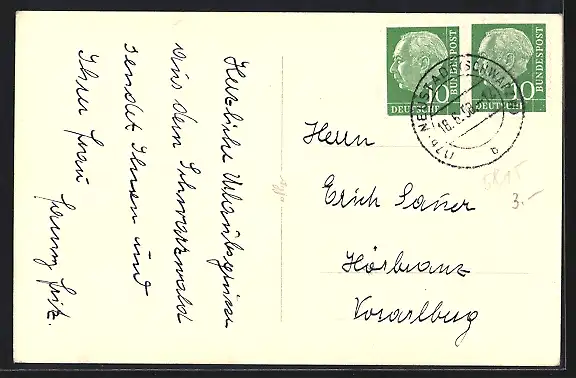 Herzliche Urlaubsgrüsse
aus dem Schwarzwald
sendet Ihnen und
Ihrer Frau
Fritz.
10
DEUTSCHE BUNDESPOST
10
DEUTSCHE BUNDESPOST
(17b) NEUSTADT (SCHWARZW)
18.6.58
a
Herrn
Erich Sauer
Hörbranz
Vorarlberg
3.-